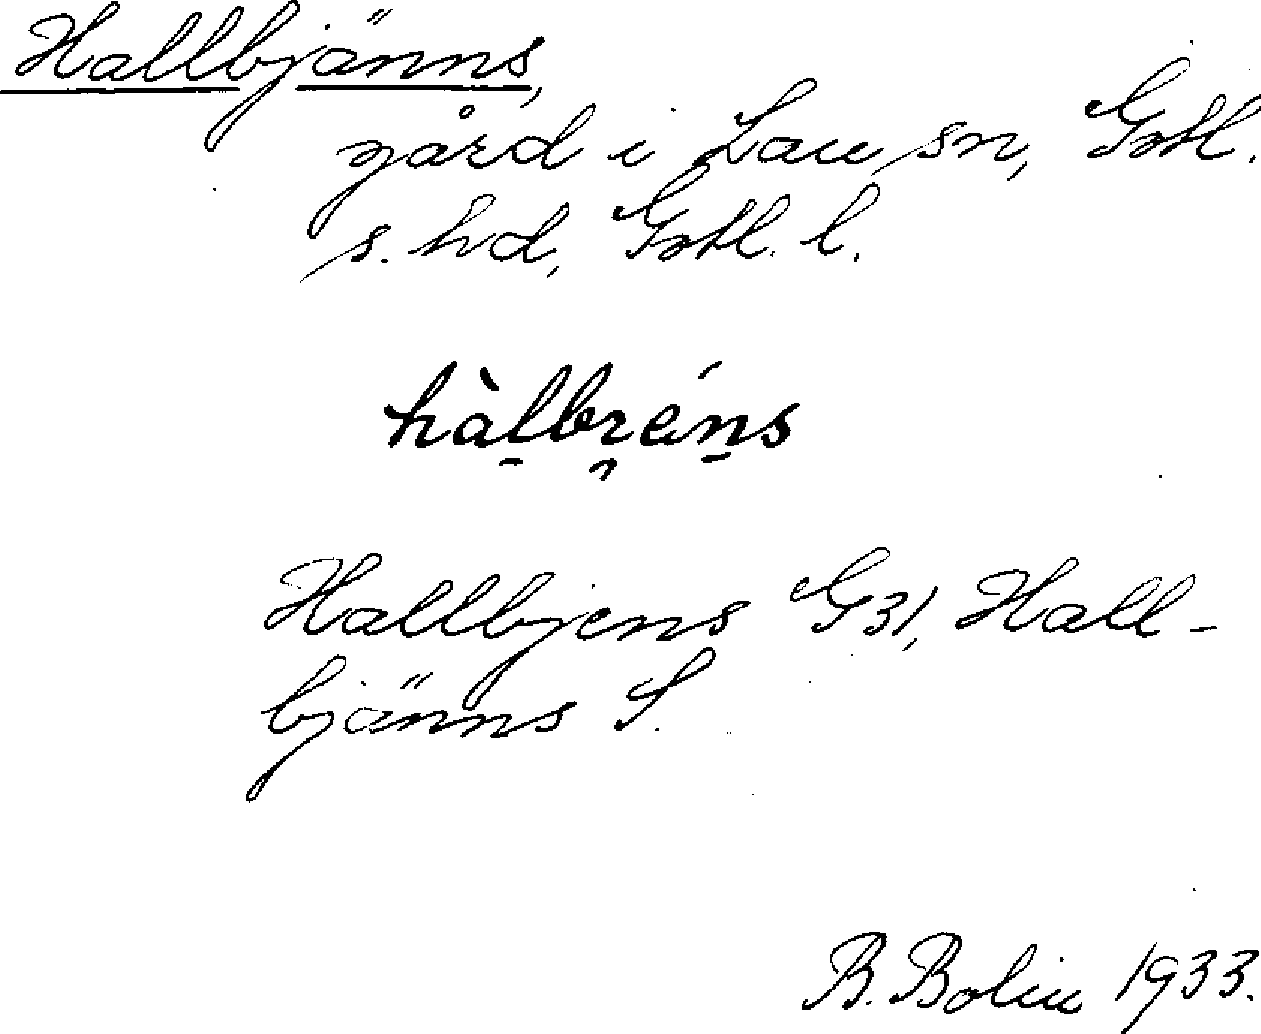 Hallbjänns,
gård i Lau sn, Gotl.
s. hd, Gotl. l.
Hallbjens G31, Hall-
bjänns S.
B. Bolin 1933.